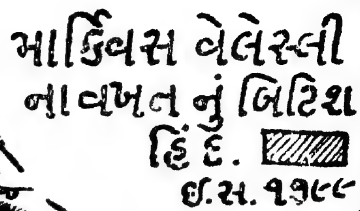 માર્ક્વિસ વેલેસ્લી
ના વખત નું બ્રિટિશ
હિંદ.
ઇ.સ. ૧૭૯૯